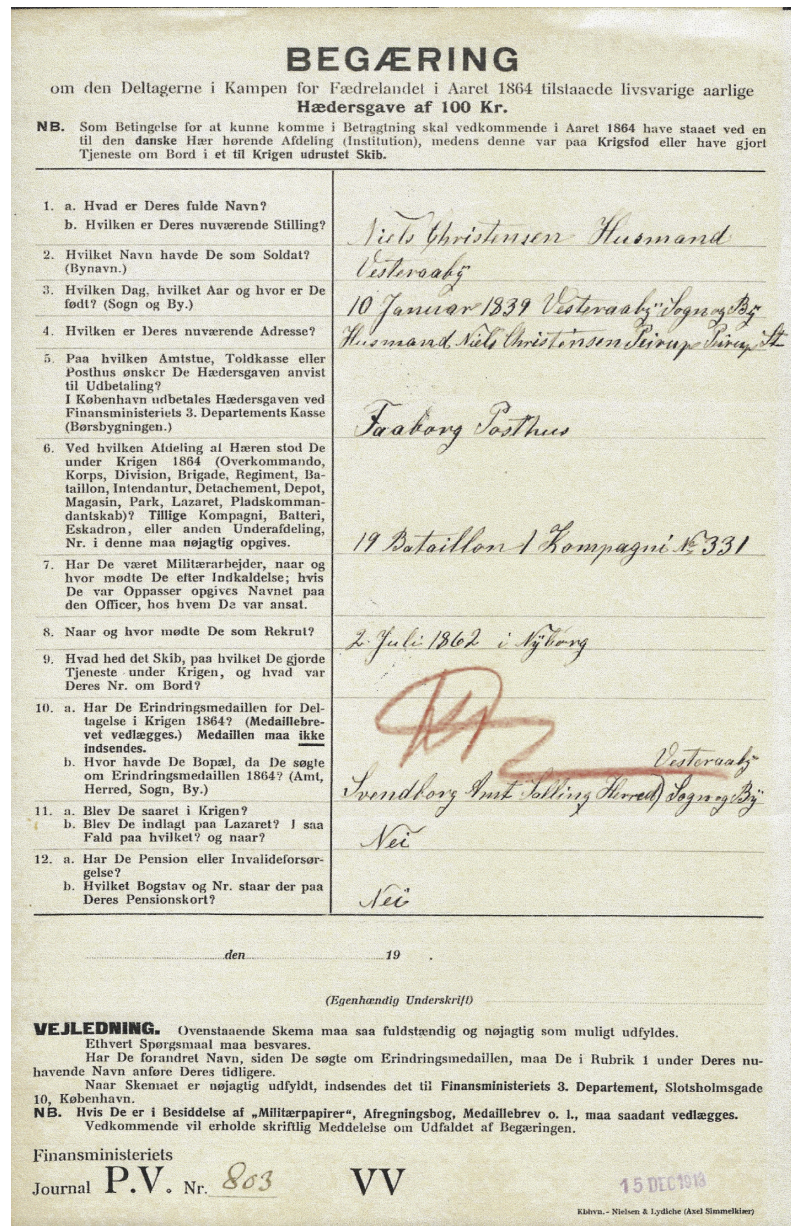 BEGÆRING
om den Deltagerne i Kampen for Fædrelandet i Aaret 1864 tilstaaede livsvarige aarlige
Hædersgave af 100 Kr.
NB. Som Betingelse for at kunne komme i Betragtning skal vedkommende i Aaret 1864 have staaet ved en
til den danske Hær hørende Afdeling (Institution), medens denne var paa Krigsfod eller have gjort
Tjeneste om Bord i et til Krigen udrustet Skib.
1. a. Hvad er Deres fulde Navn?
b. Hvilken er Deres nuværende Stilling?
Niels Christensen Husmand
2. Hvilket Navn havde De som Soldat?
(Bynavn.)
Vesteraaby
3. Hvilken Dag, hvilket Aar og hvor er De
født? (Sogn og By.)
10 Januar 1839 Vesteraaby Sogn og By
4. Hvilken er Deres nuværende Adresse?
Husmand Niels Christensen Peirup Peirup St
5. Paa hvilken Amtstue, Toldkasse eller
Posthus ønsker De Hædersgaven anvist
til Udbetaling?
I København udbetales Hædersgaven ved
Finansministeriets 3. Departements Kasse
(Børsbygningen.)
Faaborg Posthus
6. Ved hvilken Afdeling af Hæren stod De
under Krigen 1864 (Overkommando,
Korps, Division, Brigade, Regiment, Ba-
taillon, Intendantur, Detachement, Depot,
Magasin, Park, Lazaret, Pladskomman-
dantskab)? Tillige Kompagni, Batteri,
Eskadron, eller anden Underafdeling,
Nr. i denne maa nøjagtig opgives.
19 Bataillon 1 Kompagni No 331
7. Har De været Militærarbejder, naar og
hvor mødte De efter Indkaldelse; hvis
De var Oppasser opgives Navnet paa
den Officer, hos hvem De var ansat.
8. Naar og hvor mødte De som Rekrut?
2. Juli 1862 i Nyborg
9. Hvad hed det Skib, paa hvilket De gjorde
Tjeneste under Krigen, og hvad var
Deres Nr. om Bord?
10. a. Har De Erindringsmedaillen for Del-
tagelse i Krigen 1864? (Medaillebre-
vet vedlægges.) Medaillen maa ikke
indsendes.
b. Hvor havde De Bopæl, da De søgte
om Erindringsmedaillen 1864? (Amt,
Herred, Sogn, By.)
Vesteraaby
Svendborg Amt Salling Herred Sogn og By
11. a. Blev De saaret i Krigen?
b. Blev De indlagt paa Lazaret? I saa
Fald paa hvilket? og naar?
Nei
12. a. Har De Pension eller Invalideforsør-
gelse?
b. Hvilket Bogstav og Nr. staar der paa
Deres Pensionskort?
Nei
den 19 .
(Egenhændig Underskrift)
VEJLEDNING. Ovenstaaende Skema maa saa fuldstændig og nøjagtig som muligt udfyldes.
Ethvert Spørgsmaal maa besvares.
Har De forandret Navn, siden De søgte om Erindringsmedaillen, maa De i Rubrik 1 under Deres nu-
havende Navn anføre Deres tidligere.
Naar Skemaet er nøjagtig udfyldt, indsendes det til Finansministeriets 3. Departement, Slotsholmsgade
10, København.
NB. Hvis De er i Besiddelse af „Militærpapirer“, Afregningsbog, Medaillebrev o. l., maa saadant vedlægges.
Vedkommende vil erholde skriftlig Meddelelse om Udfaldet af Begæringen.
Finansministeriets
Journal P.V. Nr. 803 VV
15 DEC 1913
Kbhvn. - Nielsen & Lydiche (Axel Simmelkiær)